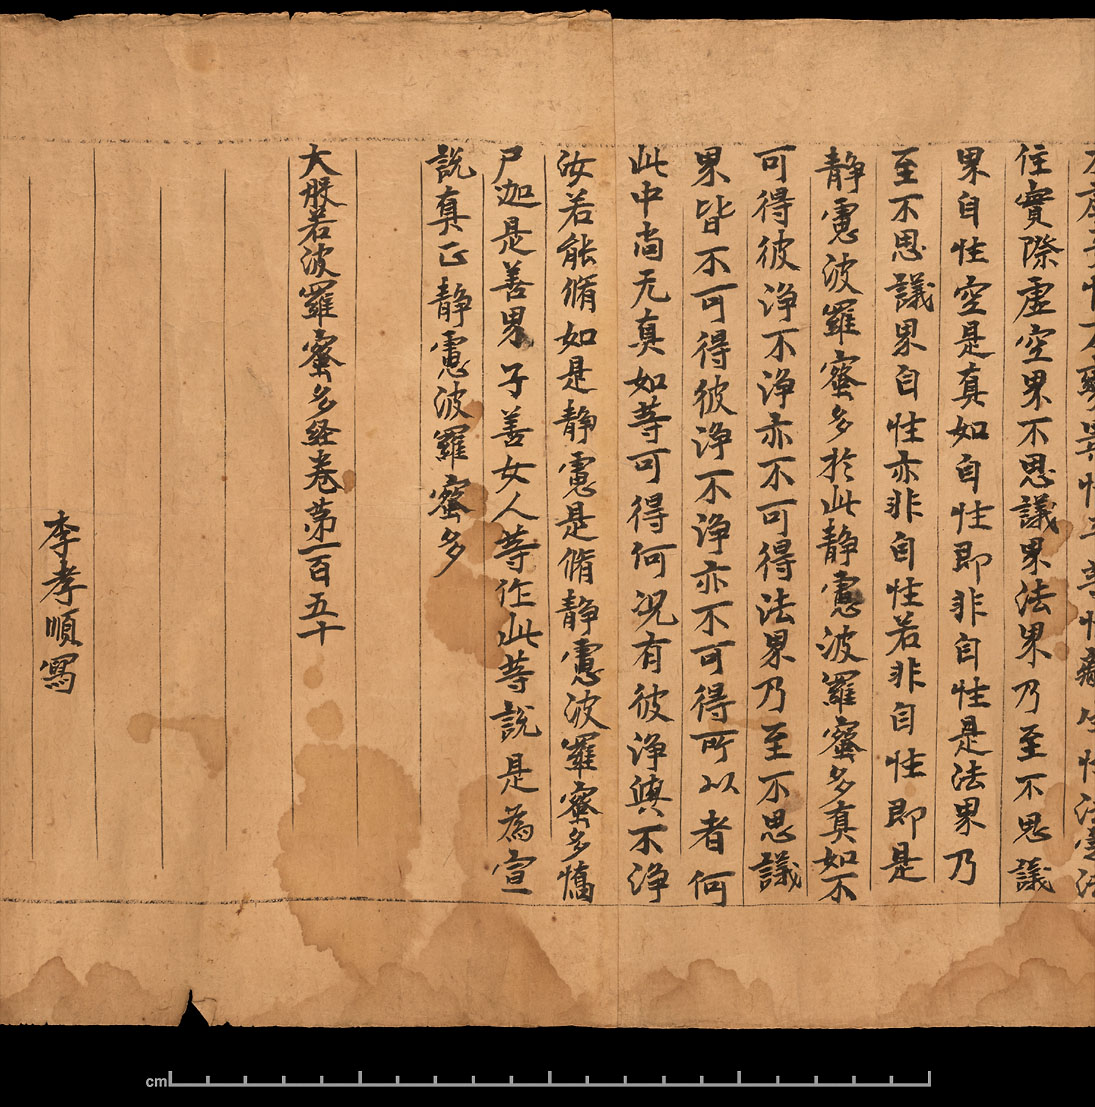 不虛妄性不變異性平等性離生性法定法
住實際虛空界不思議界法界乃至不思議
界自性空是真如自性即非自性是法界乃
至不思議界自性亦非自性若非自性即是
靜慮波羅蜜多於此靜慮波羅蜜多真如不
可得彼淨不淨亦不可得法界乃至不思議
界皆不可得彼淨不淨亦不可得所以者何
此中尚无真如等可得何況有彼淨與不淨
汝若能脩如是靜慮是脩靜慮波羅蜜多憍
尸迦是善男子善女人等作此等說是為宣
說真正靜慮波羅蜜多
大般若波羅蜜多經卷第一百五十
李孝順寫
cm